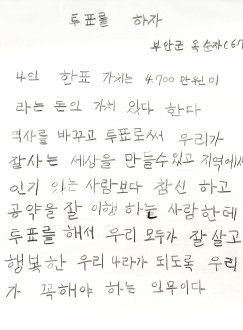 투표를 하자
부안군 옥순자(67
4의 한표 가치는 4.700 만원이
라는 돈의 가치 있다 한다
역사를 바꾸고 투표로써 우리가
잘사는 세상을 만들수있고 지역에서
인기 있는 사람보다 참신 하고
공약을 잘 이행 하는 사람한테
투표를 해서 우리 모두가 잘 살고
행복한 우리 4라가 되도록 우리
가 꼭해야 하는 의무이다